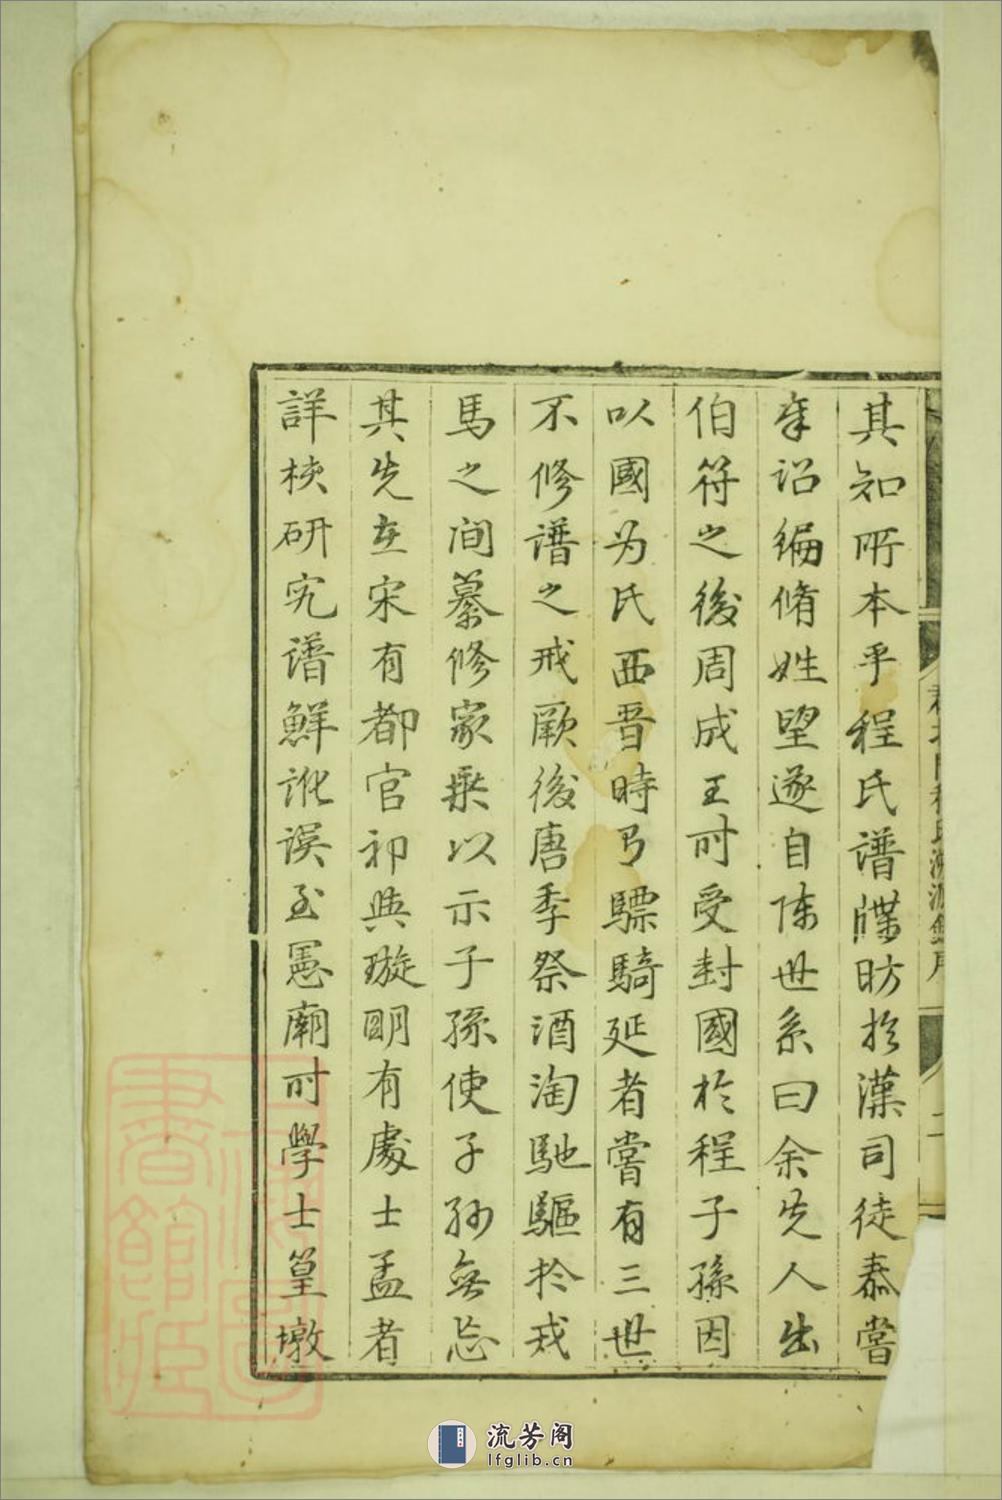 其知所本乎程氏譜牒昉於漢司徒泰嘗
奉诏编脩姓望遂自陈世系曰余先人出
伯符之後周成王时受封國於程子孫因
以國为氏西晋時乃驃騎延者嘗有三世
不修譜之戒厥後唐季祭酒淘馳驅於戎
馬之间纂修家乘以示子孫使子孙無忘
其先在宋有都官祁與璇明有處士孟者
詳挍研究谱鮮訛误至憲廟时學士篁墩
流芳阁
lfglib.cn